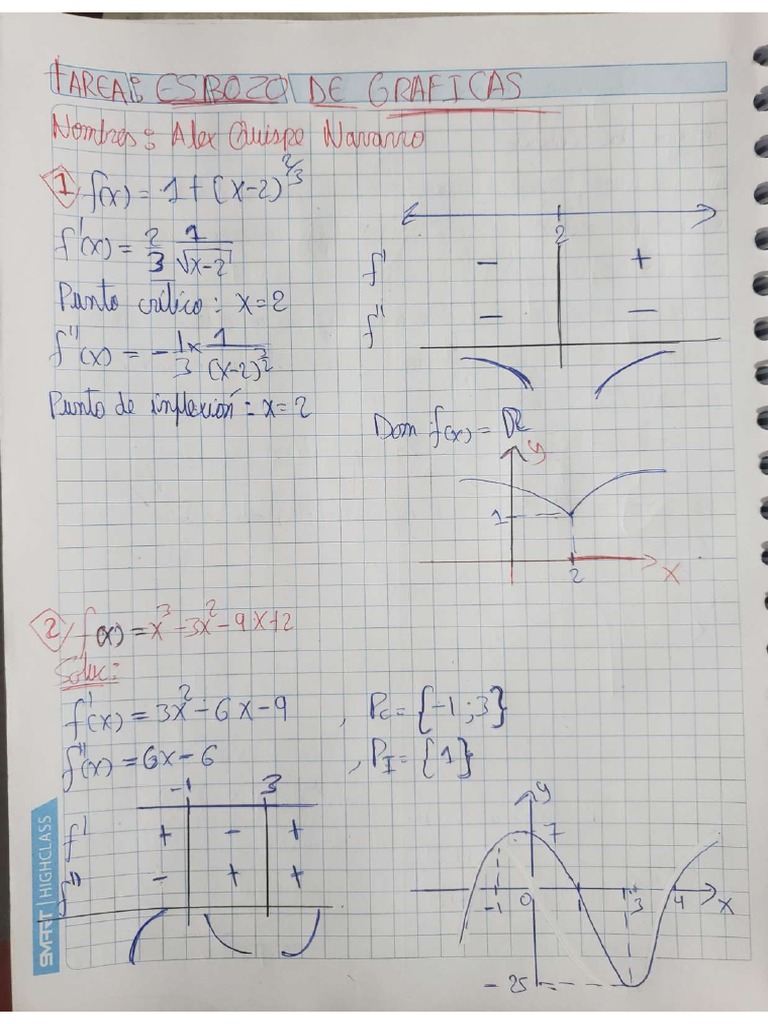 TAREA: ESBOZO DE GRAFICAS
Nombres: Alex Quispe Navarro
1/ f(x) = 1 + (x-2)^2/3
f'(x) = 2/3 1/√x-2
Punto crítico: x=2
f''(x) = -1/3 x 1/(x-2)^3/2
Punto de inflexión: x=2
2
f' - +
f'' - -
Dom f(x) = ℝ
y
1
2 x
2/ f(x) = x³-3x²-9x+2
Soluc:
f'(x) = 3x²-6x-9 , Pc = {-1;3}
f''(x) = 6x-6 , PI = {1}
-1 3
f' + - +
f'' - + +
y
7
-1 0 1 3 4 x
-25
SMART | HIGHCLASS